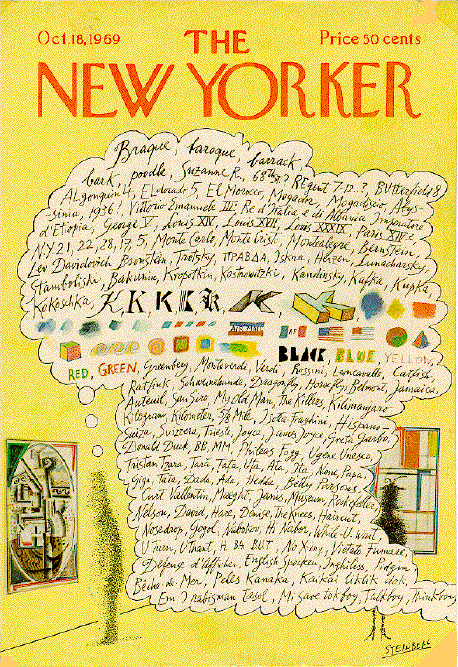 Oct. 18, 1969
THE
Price 50 cents
NEW YORKER
Braque, baroque, barrack,
bark, poodle, Suzanne R., 68th? REgent 7-12..?, BUtterfield 8,
ALgonquin 4, ELdorado 5, El Morocco, Mogador, Mogadiscio, Abys-
sinia, 1936, Vittorio Emanuele III Re d'Italia e di Albania Imperatore
d'Etiopia, George V, Louis XIV, Louis XVII, Louis XXXIX, Paris XIVe
N.Y. 21, 22, 28, 17, 5, Monte Carlo, Monte Cristi, Montealegre, Bernstein,
Lev Davidovich Bronstein, Trotsky, ПРАВДА, Iskra, Herzen, Lunacharsky,
Stamboliski, Bakunin, Kropotkin, Kandinsky, Kafka, Kupka,
Kokoschka K, K, K K K K K
AIR MAIL
BLACK, BLUE, YELLOW,
RED, GREEN, Greenberg, Monteverdi, Verdi, Rossini, Catfish,
Ratfink, Schweinehunde, Dragonfly, Horsefly, Belmont, Jamaica,
Auteuil, San Siro, My Old Man, The Killers, Kilimanjaro
Kilogram, Kilometer, 5/8 Mile, Isotta Fraschini, Hispano
Suiza, Svizzera, Trieste, Joyce, James Joyce, Greta Garbo,
Donald Duck, BB, MM, Phileas Fogg, Ugene Unesco,
Tristan Tzara, Tara, Tata, Uta, Ata, Ita, None, Papa,
Gigi, Tati, Dada, Ada, Hedda, Betty Parsons,
Curt Valentin, Maeght, Janis, Museum, Rockefeller,
Nelson, David, Have, Denise, The Knees, Haircut,
Nosedrop, Gogol, Nabokov, Hi Neighbor, While-U-Wait
U Turn, UThant, A 84 BUT No Xing, Vietato Fumare,
Défense d'afficher, English Spoken, Inglilish, Pidgin,
Bêche-de-Mer, Peles Kanaka, Kaikai liklik dok,
Em i nabigman tasol, Mi save tok boy, Talkboy, Thinkboy
STEINBERG